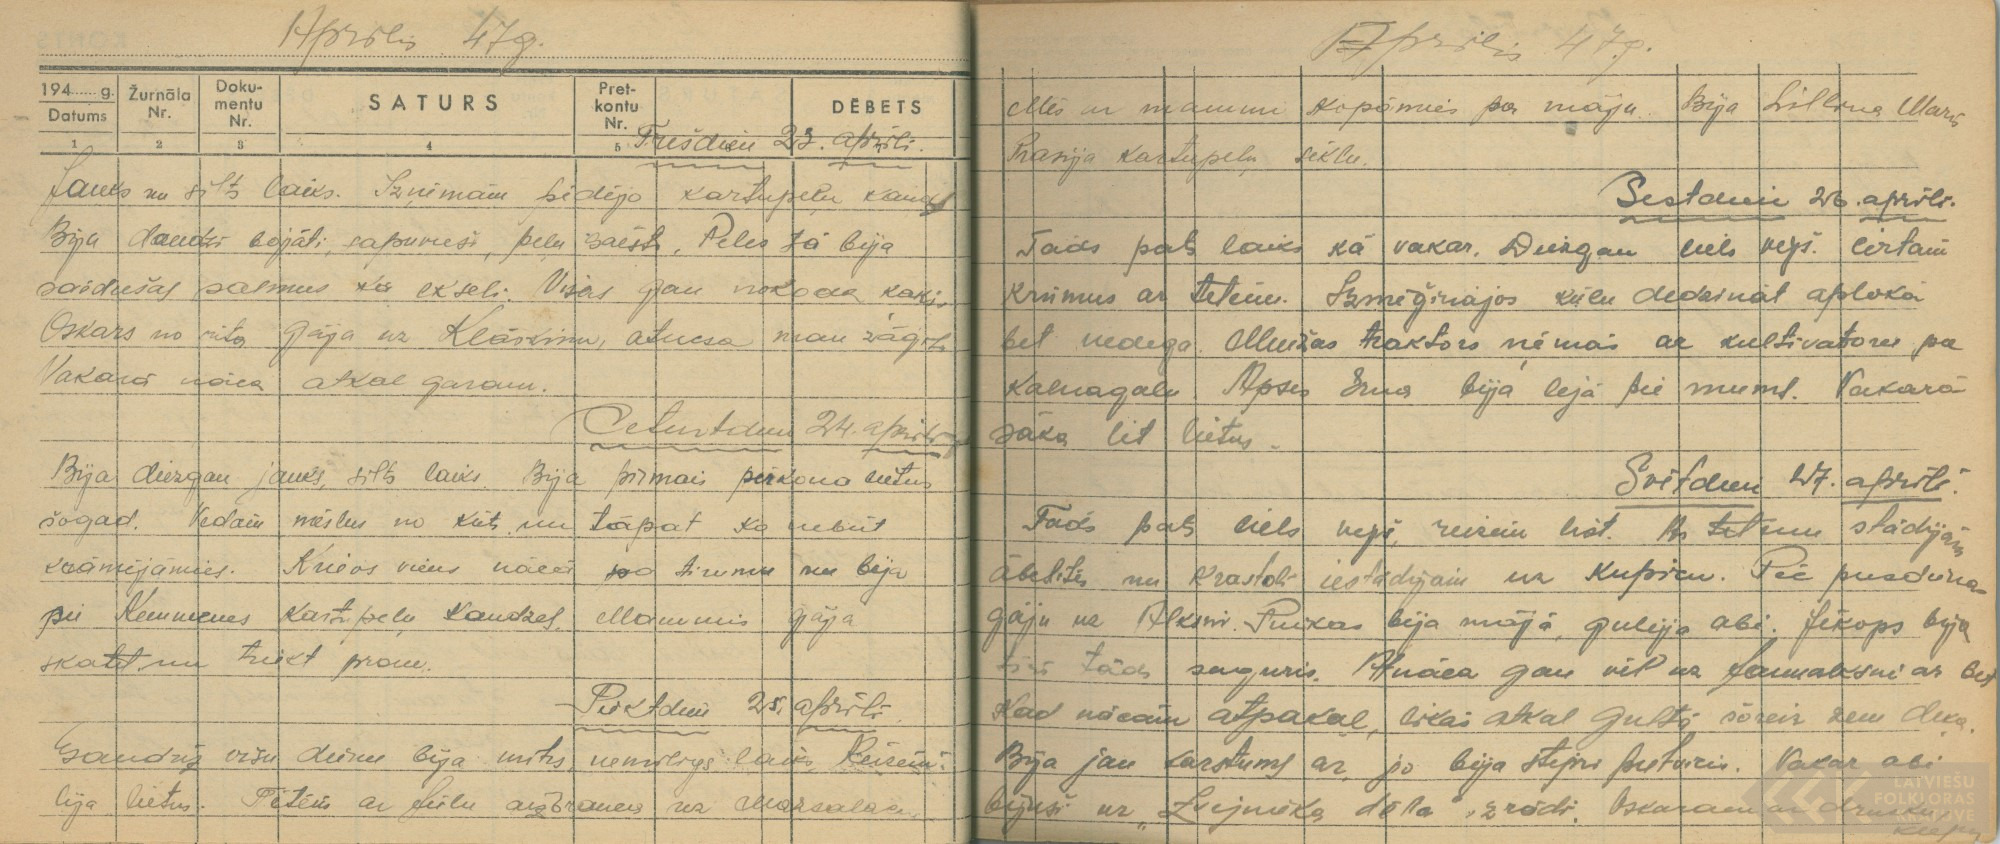 Aprīlis 47g.
194 g. Datums
Žurnāla Nr.
Doku-mentu Nr.
SATURS
Pret-kontu Nr.
DĒBETS
1 2 3 4 5
Trešdien 23. aprīlī.
Jauks un silts laiks. Izņēmām pēdējo kartupeļu kaudzi
Bija daudzi bojāti, sapuvuši, peļu saēsti. Peles tā bija
saēdušas salmus kā ekseli. Visas gan nokoda kaķis
Oskars no rīta gāja uz atnesa man zāģīti
Vakarā nāca atkal garām.
Ceturtdien 24. aprīlī
Bija diezgan jauks, silts laiks. Bija pirmais pērkona lietus
šogad. Vedām mēslus no kūts un tāpat ko nebūt
krāmējāmies. Krievs viens nāca pa tīrumu un bija
pie Ķemmeres kartupeļu kaudzes. Mammis gāja
skatīt un triekt prom.
Piektdien 25. aprīlī
Gandrīz visu dienu bija mitrs, nemīlīgs laiks. Reizēm
lija lietus. Tētēns ar aizbrauca uz
Aprīlis 47g.
Mēs ar mammu kopāmies pa māju. Bija Lilliņa Maris
Prasīja kartupeļu sēklu.
Sestdien 26. aprīlī.
Tāds pats laiks kā vakar. Diezgan liels vējš. Cirtām
krūmus ar tētēnu. Izmēģinājos kūlu dedzināt aplokā
bet nedega. Muižas traktors ņēmās ar kultivatoru pa
kalnagalu. Apses Erna bija lejā pie mums. Vakarā
sāka līt lietus.
Svētdien 27. aprīlī.
Tāds pats liels vējš, reizēm līst. Ar tētēnu stādījām
ābelītes un krastā iestādījām uz kupicu. Pēc pusdienas
gāju uz Alksni. Puikas bija mājā, gulēja abi. Jēkops bija
tāds saguris. Atnāca gan vēl uz Jaunalksni ar bet
kad nācām atpakaļ, likās atkal gultā, šoreiz zem deķa.
Bija jau karstums ar, jo bija stipri pietvīcis. Vakar abi
bijuši uz „Zvejnieka dēla" izrādi. Oskaram ar
LATVIEŠU
FOLKLORAS
KRĀTUVE